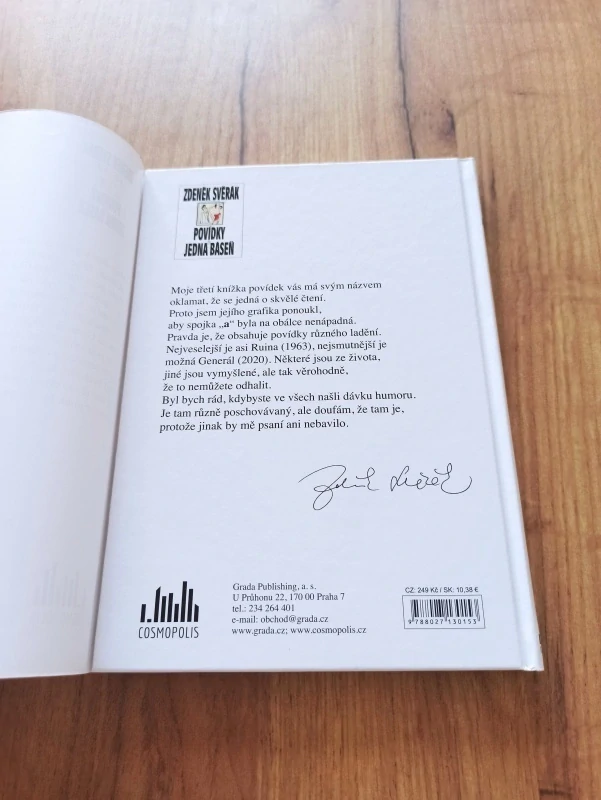 ZDENĚK SVĚRÁK
POVÍDKY
JEDNA BÁSEŇ
Moje třetí knížka povídek vás má svým názvem
oklamat, že se jedná o skvělé čtení.
Proto jsem jejího grafika ponoukl,
aby spojka „a“ byla na obálce nenápadná.
Pravda je, že obsahuje povídky různého ladění.
Nejveselejší je asi Ruina (1963), nejsmutnější je
možná Generál (2020). Některé jsou ze života,
jiné jsou vymyšlené, ale tak věrohodně,
že to nemůžete odhalit.
Byl bych rád, kdybyste ve všech našli dávku humoru.
Je tam různě poschovávaný, ale doufám, že tam je,
protože jinak by mě psaní ani nebavilo.
Zdeněk Svěrák
COSMOPOLIS
Grada Publishing, a. s.
U Průhonu 22, 170 00 Praha 7
tel.: 234 264 401
e-mail: obchod@grada.cz
www.grada.cz; www.cosmopolis.cz
CZ: 249 Kč / SK: 10,38 €
9 788027 130153